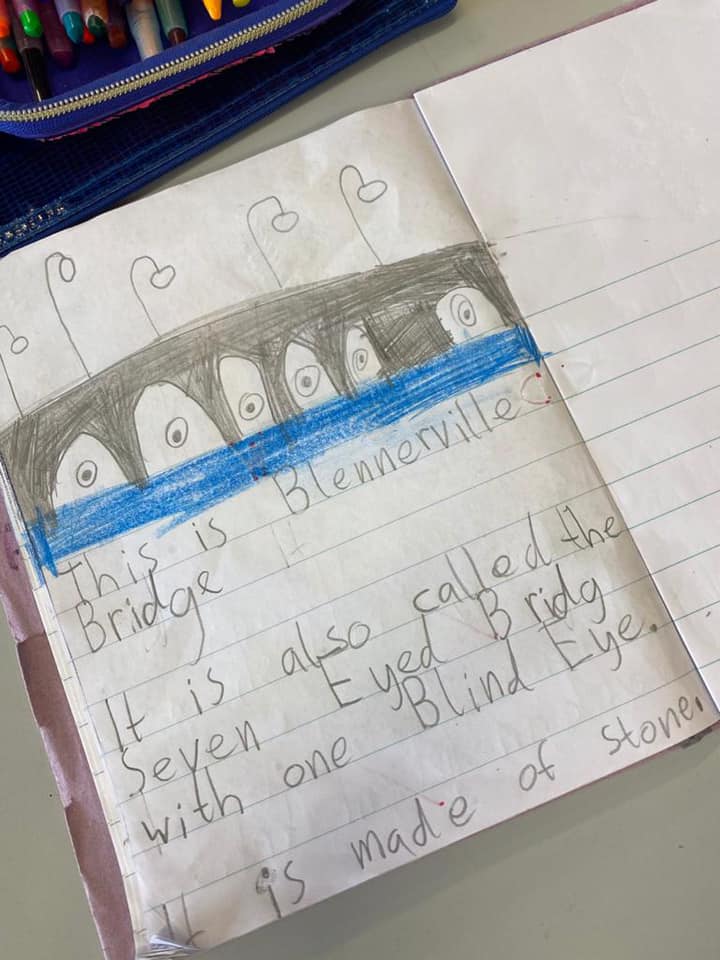 This is Blennerville
Bridge It
It is also called the
Seven Eyed Bridg
with one Blind Eye.
It is made of stone.